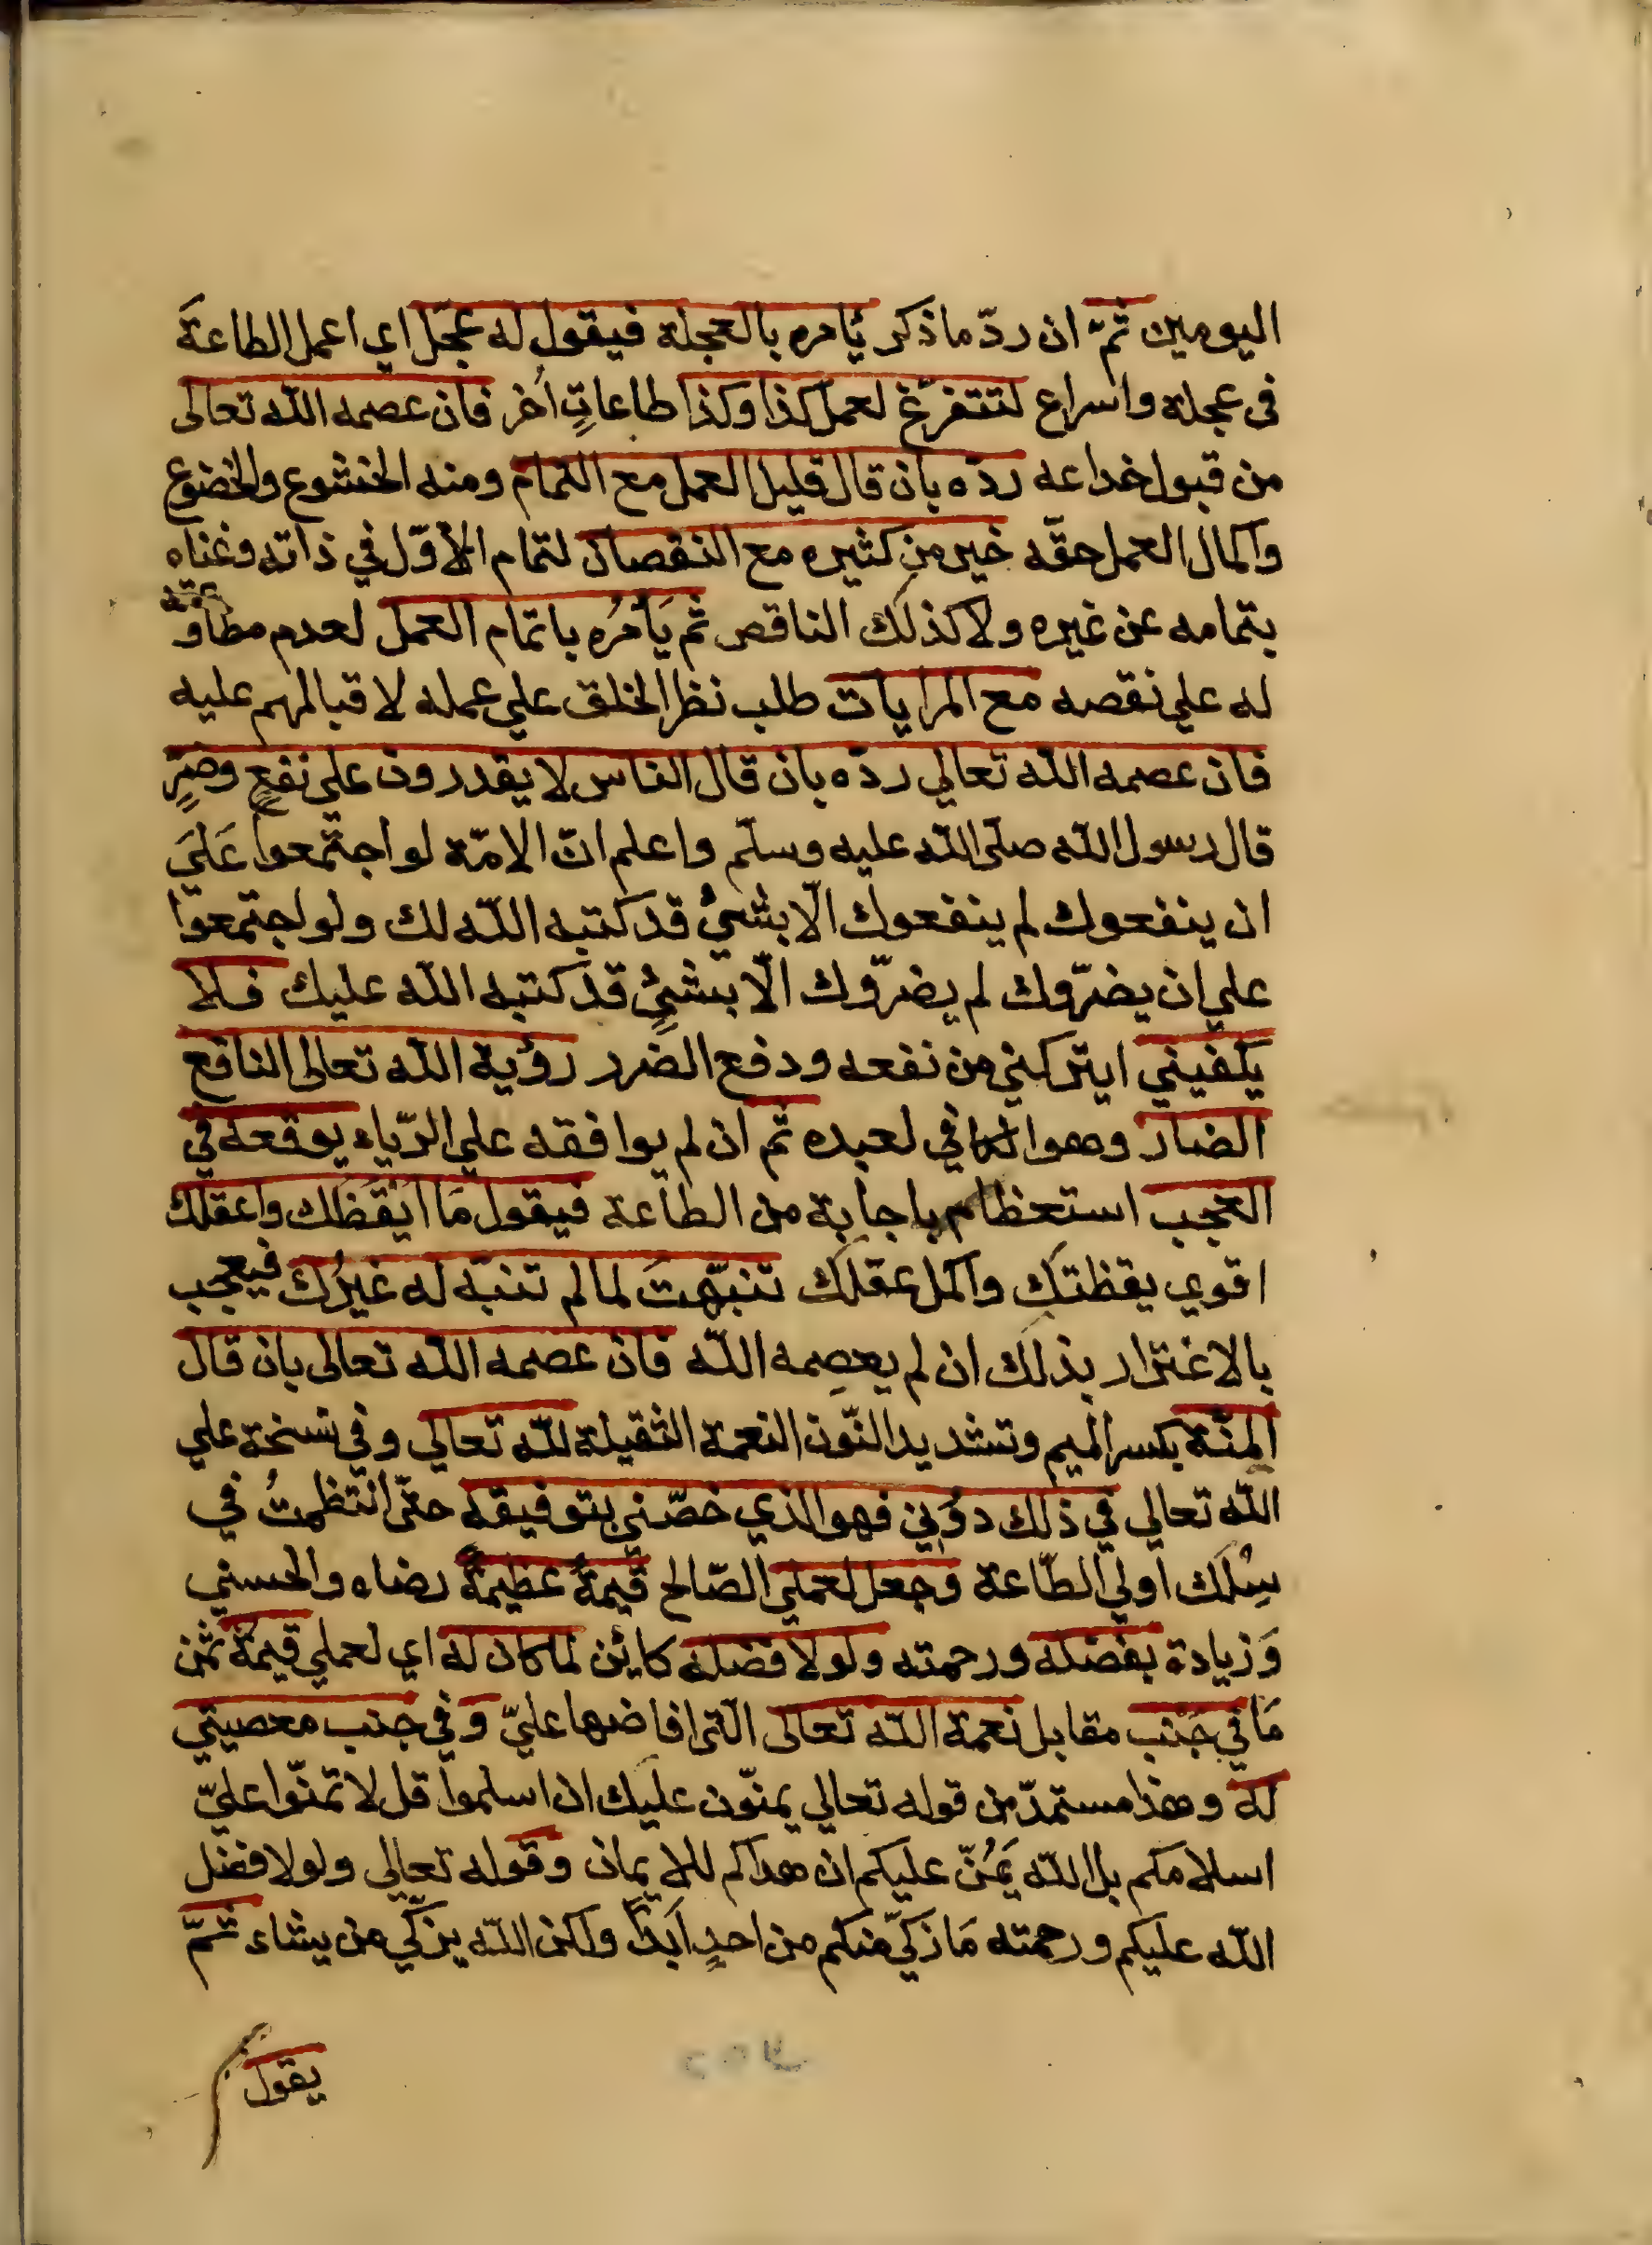 اليومين ثمّ ان ردّ ما ذكر يأمره بالعجلة فيقول له عجّل اي اعمل الطاعةَ
فى عجلة واسراع لتتفرّغ لعمل كذا وكذا طاعاتٍ اُخر فان عصمه اللّه تعالى
من قبول خداعه ردّه بان قال قليل العمل مع التمام ومنه الخشوع والخضوع
واكمال العمل حقّه خير من كثيره مع النقصان لتمام الاوّل في ذاته وغناه
بتمامه عن غيره ولا كذلك الناقص ثم يَأمُره باتمام العمل لعدم مطاوعته
له علي نقصه مع المرايات طلب نظر الخلق علي عمله لاقبالهم عليه
فان عصمه اللّه تعالي ردّه بان قال الناس لا يقدرون علي نفعٍ وضرٍّ
قال رسول اللّه صلّى اللّه عليه وسلّم واعلم انّ الامّة لو اجتمعوا عَلَي
ان ينفعوك لم ينفعوك الّا بشيءٍ قد كتبه اللّه لك ولو اجتمعوا
علي ان يضرّوك لم يضرّوك الّا بشيءٍ قد كتبه اللّه عليك فلا
يكفيني ايتركني من نفعه ودفع الضرر رؤية اللّه تعالى النافع
الضار وهو الكافي لعبده ثم ان لم يوافقه علي الرّياء يوقعه في
العجب استعظام باجابة من الطاعة فيقول مَا ايقَظك واعقلك
اقوي يقظتك واكمل عقلك تنبّهتَ لما لم تنبّه له غيرُك فيعجب
بالاغترار بذلك ان لم يعصِمه اللّه فان عصمه اللّه تعالى بان قال
المنّة بكسر الميم وتشديد النّون النعمة الثقيلة للّه تعالي وفي نسخة علي
اللّه تعالي في ذلك دوُني فهو الذي خصّني بتوفيقه حتّى انتظمتُ في
سِلك اولي الطّاعة وجعل لعملي الصّالح قيمةً عظيمةً رضاه والحسني
وَزيادة بفضله ورحمته ولولا فضله كائن لما كان له اي لعملي قيمة ثمن
مَا في جَنب مقابل نعمة اللّه تعالى الّتى افاضها عليّ وفي جنب معصيتي
له وهذا مستمدّ من قوله تعالي يمنّون عليك ان اسلموا قل لا تمنّوا عليّ
اسلامكم بل اللّه يَمُنّ عليكم ان هداكم للايمان وقوله تعالي ولولا فضل
اللّه عليكم ورحمته مَا زكيّ منكم من احدٍ اَبدًا ولكن اللّه يزكّي من يشاء ثمّ
يقول